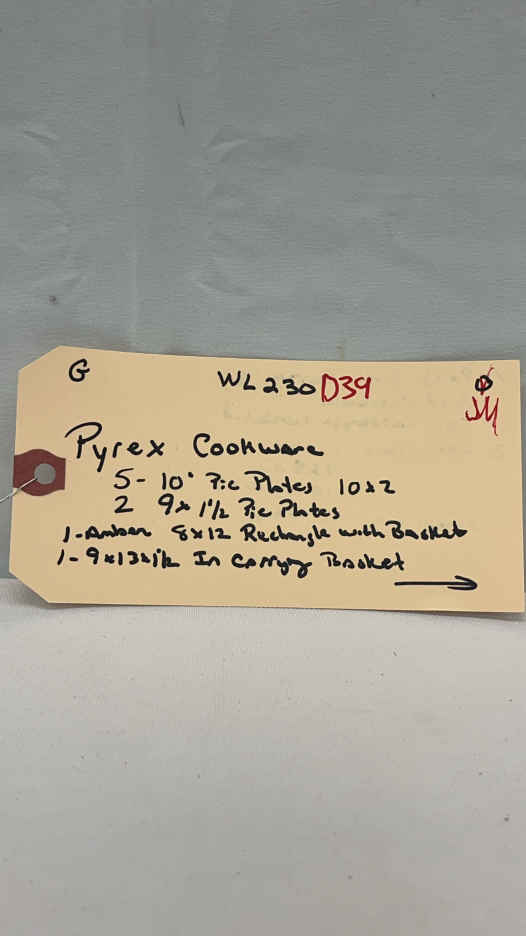 G WL230 D39 φ
JM
Pyrex Cookware
5- 10" Pie Plates 10x2
2 9x1½ Pie Plates
1-Amber 8x12 Rectangle with Basket
1- 9x13x1½ In Carrying Basket